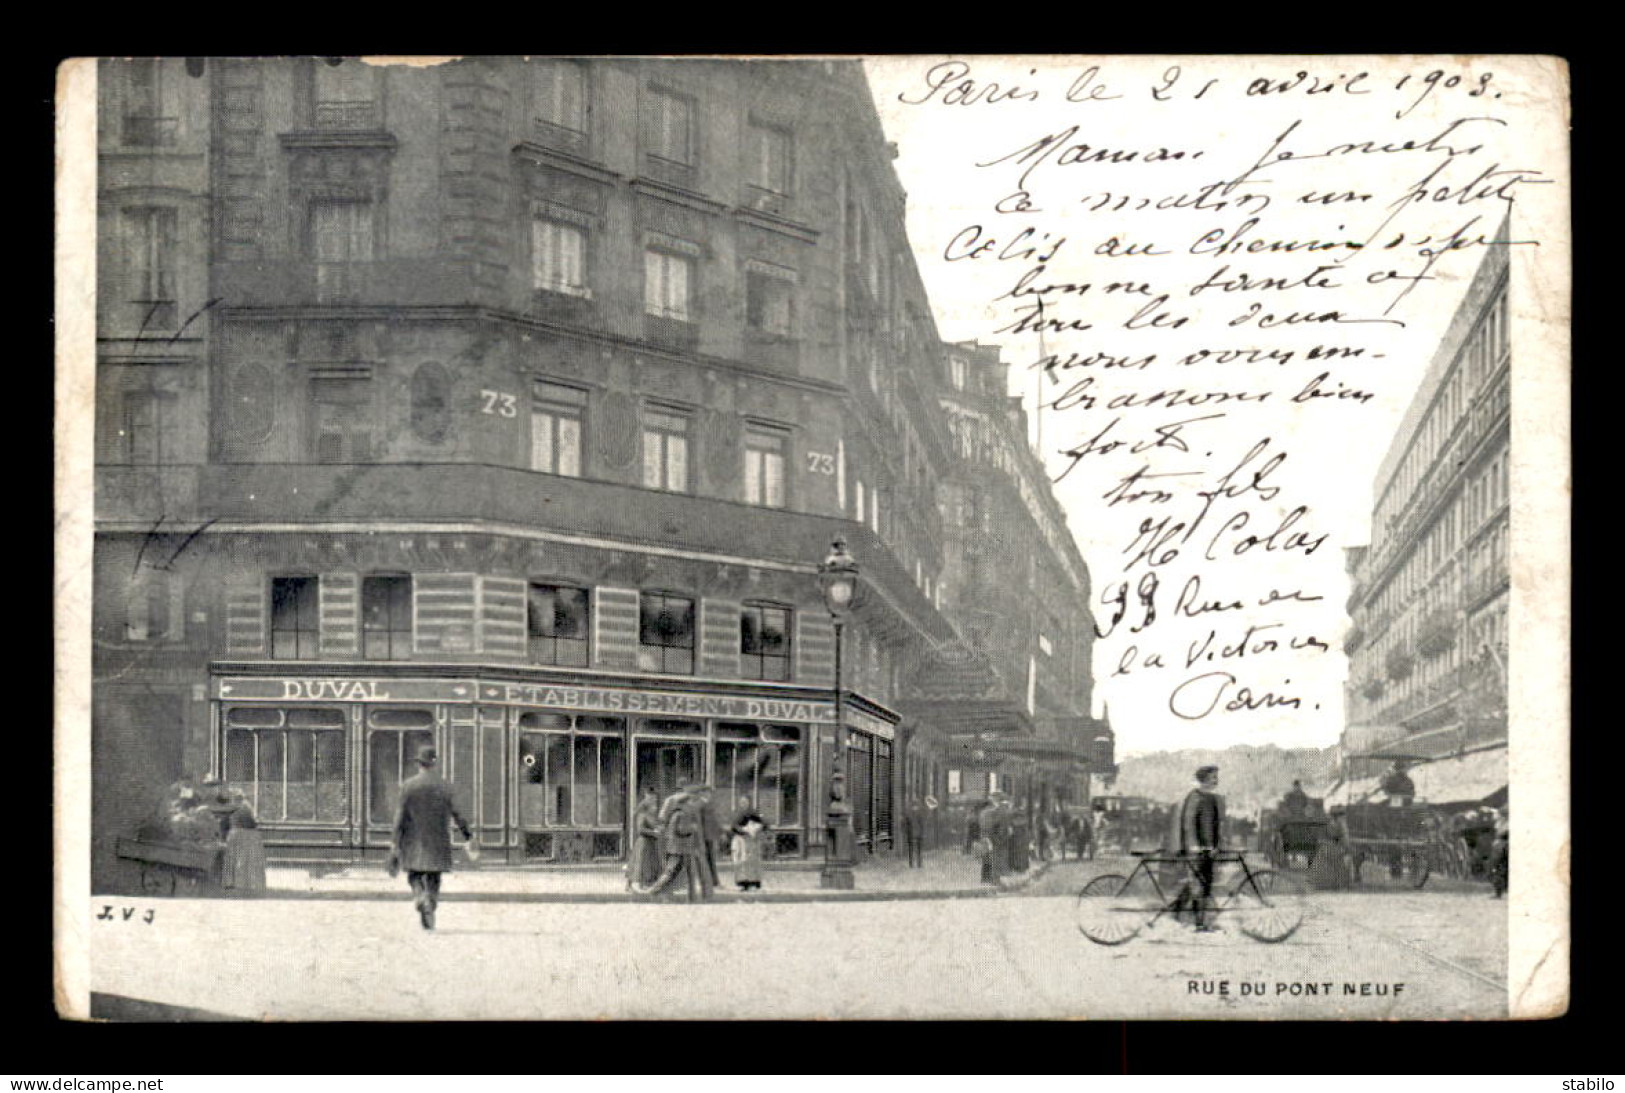 Paris le 21 avril 1903.
Maman. Je mets
ce matin un petit
Colis au Chemin de fer
bonne Sante a
tou les deux
nous vous em-
brassons bien
fort.
ton fils
H Colas
99 Rue de
la Victoire
Paris.
73
73
DUVAL
ETABLISSEMENT DUVAL
J. V J
RUE DU PONT NEUF
www.delcampe.net
stabilo